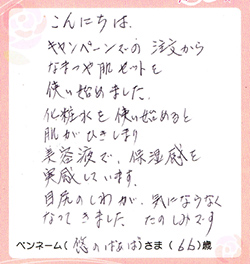 こんにちは.
キャンペーンでの 注文から
なまつや肌セットを
使い始めました.
化粧水を 使い始めると
肌がひきしまり
美容液で、保湿感を
実感しています.
目尻のしわが、気にならなく
なってきました たのしみです
ペンネーム( 悠のばぁば)さま ( 66 )歳